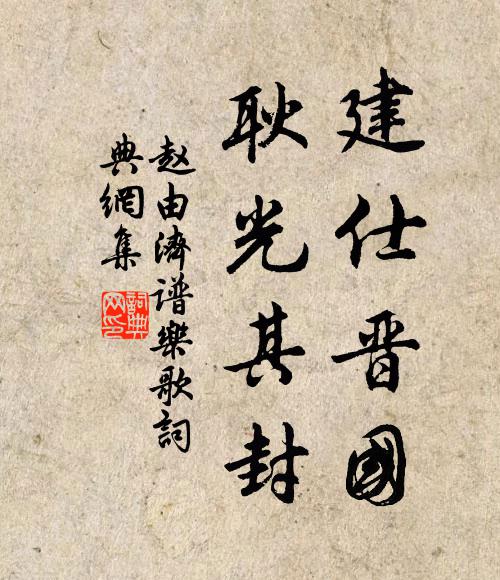 建仕晋國
耿光其封
赵由濟谱樂歌詞
典網集
詞典
网印